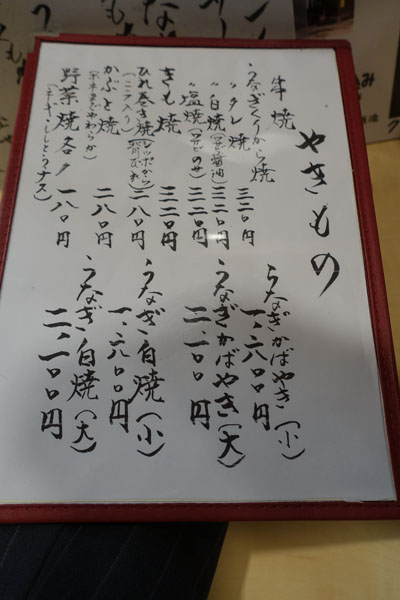 やきもの
串焼
うなぎくりから焼
〃タレ焼 三二〇円
〃白焼(わさび醤油) 三二〇円
〃塩焼(わさびのせ) 三二〇円
きも焼 三二〇円
ひれ巻き焼 二八〇円
(ニラ入り)
かぶと焼 二八〇円
野菜焼各々 一八〇円
(ネギ・ししとう・ナス)
うなぎかばやき(小)
一、六〇〇円
うなぎかばやき(大)
二、一〇〇円
うなぎ白焼(小)
一、六〇〇円
うなぎ白焼(大)
二、一〇〇円